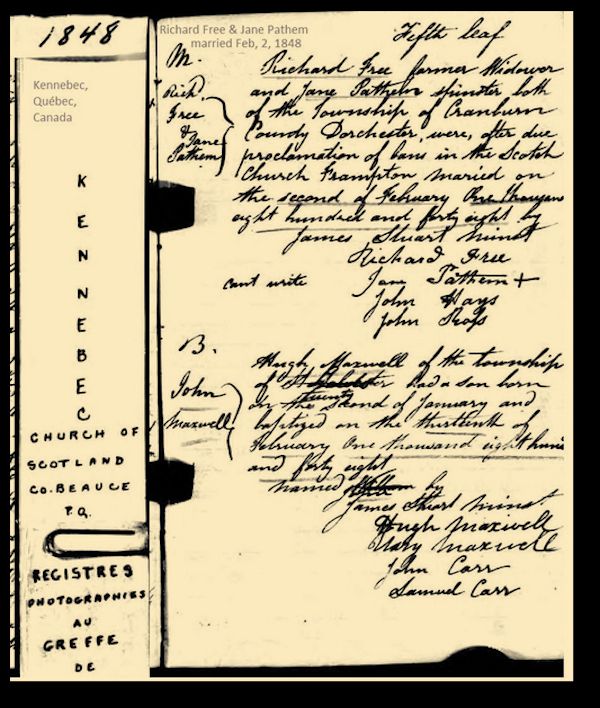 1848
Kennebec,
Québec,
Canada
KENNEBEC
CHURCH OF
SCOTLAND
CO. BEAUCE
P.Q.
REGISTRES
PHOTOGRAPHIES
AU
GREFFE
DE
Richard Free & Jane Pathem
married Feb, 2, 1848
Fifth leaf
M.
Rich.
Free
& Jane
Pathem
Richard Free farmer Widower
and Jane Pathem spinster both
of the Township of Cranburn
County Dorchester, were, after due
proclamation of bans in the Scotch
Church Frampton maried on
the second of February One thousand
eight hundred and forty eight by
James Stuart Minst
Richard Free
cant write Jane Pathem +
John Hays
John
B.
John
Maxwell
Hugh Maxwell of the township
of had a son born
on the twenty second of January and
baptized on the thirteenth of
February One thousand eight hund
and forty eight
named by
James Stuart Minst
Hugh Maxwell
Mary Maxwell
John Carr
Samuel Carr